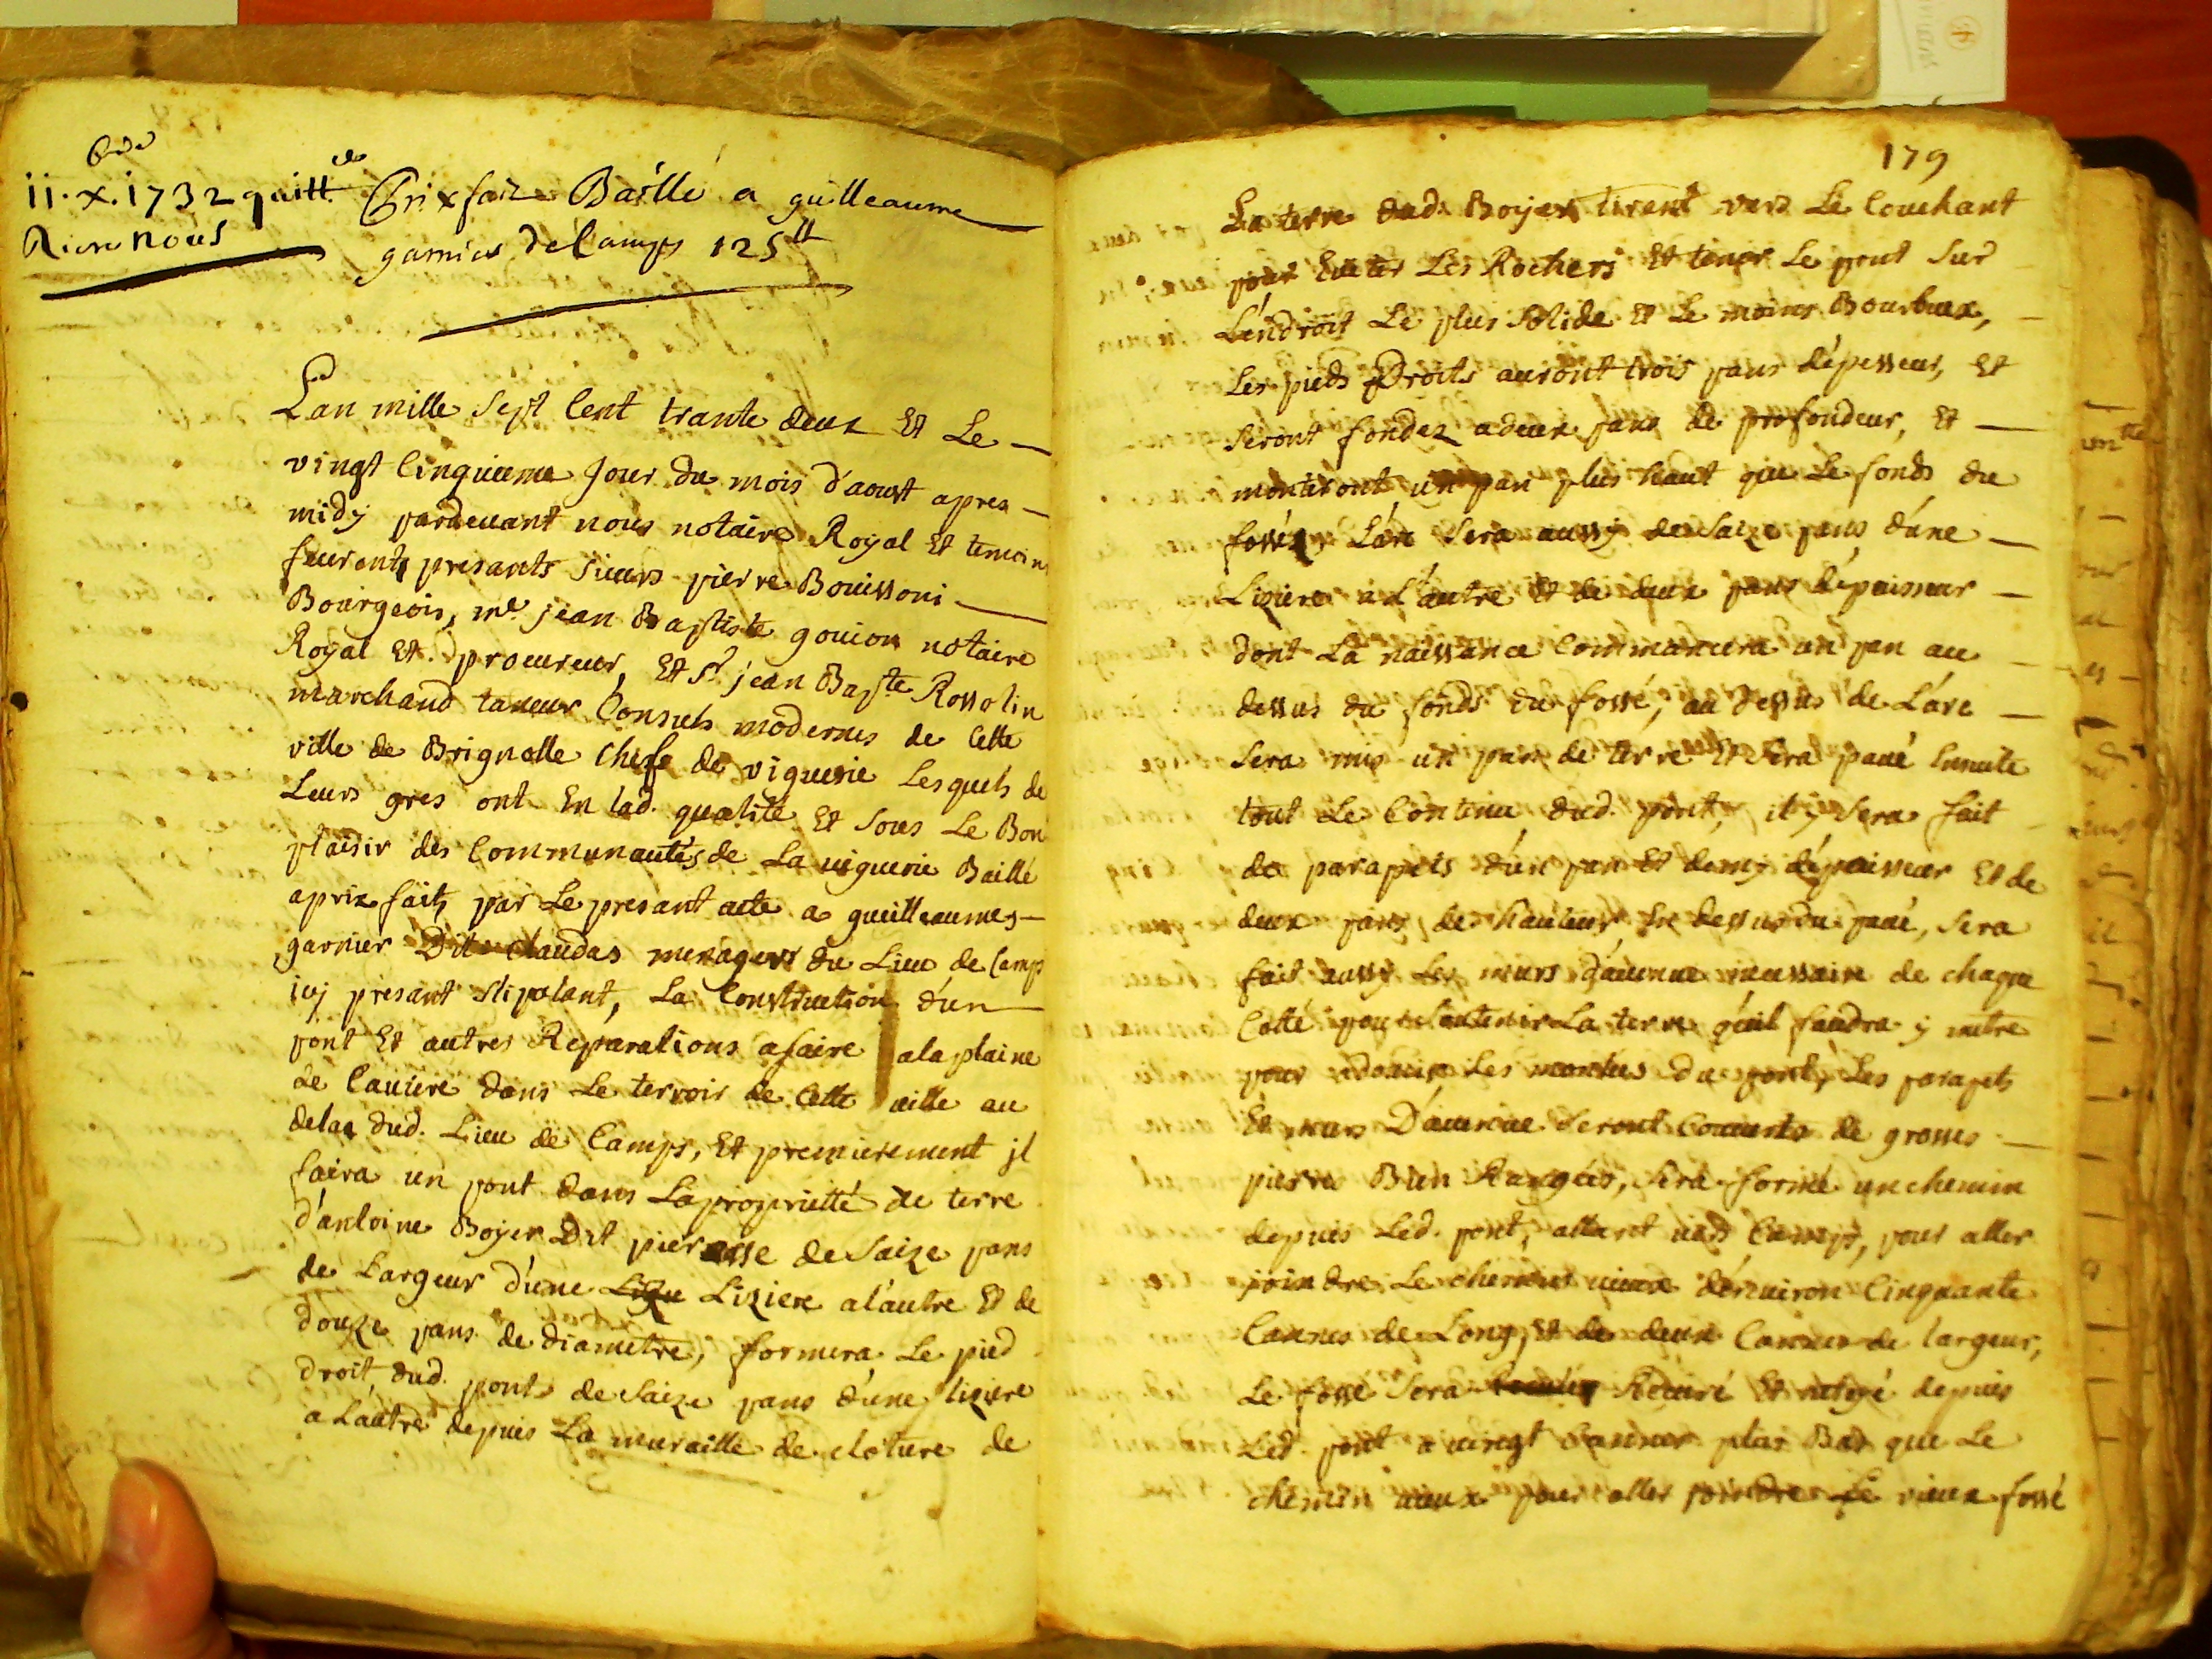 11. x. 1732 quitt.
Rière nous
Prix fait Baillé a guilleaume
garnier de Camps 125 tt
Lan mille Sept Cent trante deux Et Le
vingt Cinquieme Jour du mois d'aoust apres
midy pardeuant nous notaire Royal Et temoins
feurent presants Sieurs pierre Bouissoni
Bourgeois, me. jean Baptiste goujon notaire
Royal Et procureur, Et Sr. jean Bapte Rossolin
marchand taneur Consuls modernes de Cette
ville de Brignolle Chef de viguerie Lesquels de
Leurs gres ont En lad. qualité Et Sous Le Bon
plaisir des Communautés de La uiguerie Baillé
aprix fait, par Le presant acte a guilleaume
garnier Dit Claudas menager du Lieu de Camps
icy presant Stipulant, La Construction d'un
pont Et autres Reparations afaire ala plaine
de Cauiere dans Le terroir de Cette uille au
dela dud. Lieu de Camps, Et premierement jl
faira un pont dans La proprietté de terre
d'antoine Boyer Dit pierasse de Saize pans
de Largeur d'une Liziere a l'autre Et de
douze pans de diametre, formera Le pied
droit dud. pont de Saize pans d'une liziere
a L'autre depuis La muraille de cloture de
179
La terre dud. Boyer tirent vers Le Couchant
pour Euiter Les Rochers Et tenir Le pont Sur
L'endroit Le plus Solide Et Le moins Bourbeux,
Les pieds Droits auront trois pans d'epesseur, Et
Seront fondez a deux pans de profondeur, Et
monteront un pan plus haut que Le fonds du
fossé, L'arc Sera aussy de Saize pans d'une
Liziere a L'autre Et de deux pans d'epaisseur
dont La naissance Commancera un pan au
dessus du fonds du fossé, au dessus de L'arc
Sera mis un pan de terre Et Sera paué Ensuite
tout Le Contenu dud. pont, il y Sera fait
de parapets d'un pan Et demy d'epaisseur Et de
deux pans de hauteur En dessus du paué, Sera
fait aussy Les murs d'auenue necessaire de chaque
Cotté pour Soutenir La terre qu'il faudra y metre
pour adoucir Les montées du pont, Les parapets
Et murs D'auenue Seront Couuerts de grosses
pierres Bien Rangées, Sera formé un chemin
depuis Led. pont, allant uers Camps, pour aller
joindre Le chemin uieux d'enuiron Cinquante
Cannes de Long, Et de deux Cannes de largeur,
Le fossé Sera Recuré Et depuis
Led. pont a uingt Cannes plus Bas que Le
chemin uieux pour aller joindre Le vieux fossé